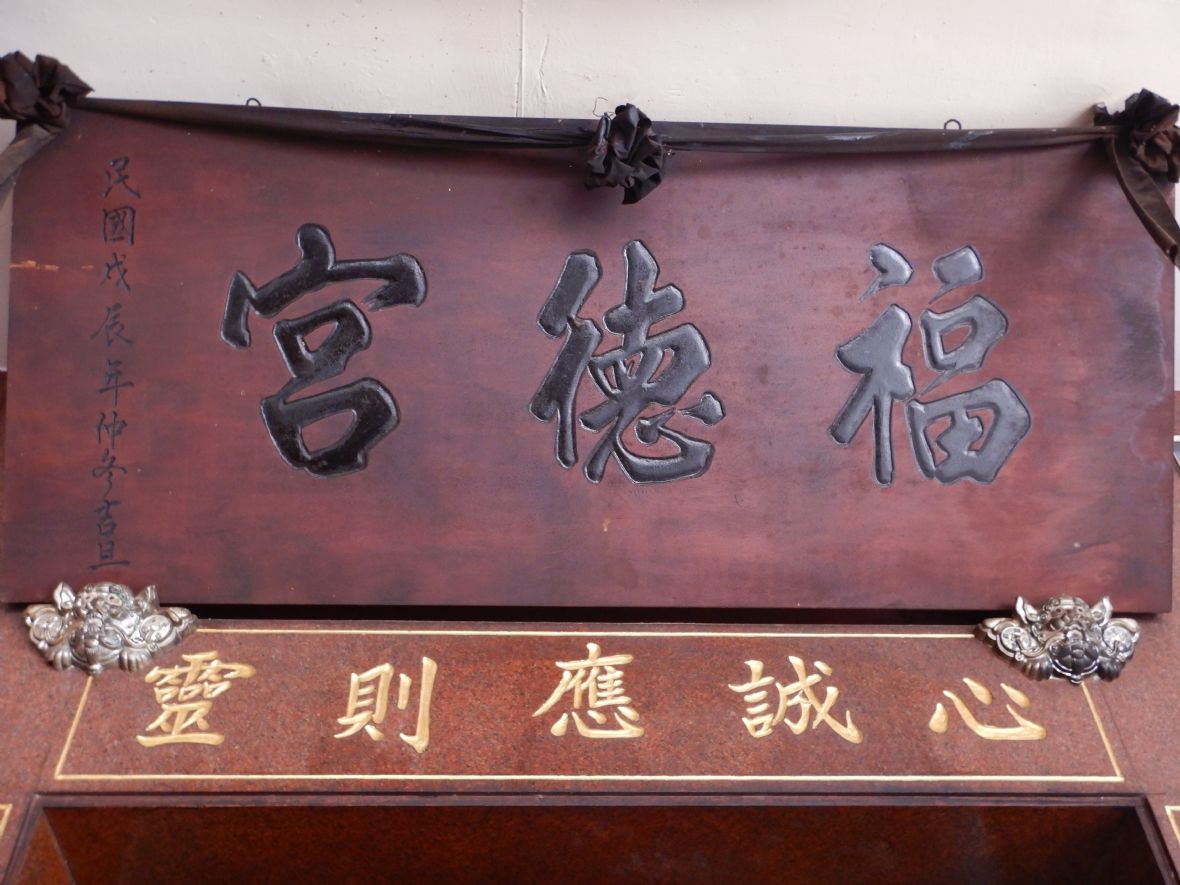 福德宮
民國戊辰年仲冬吉旦
心誠應則靈